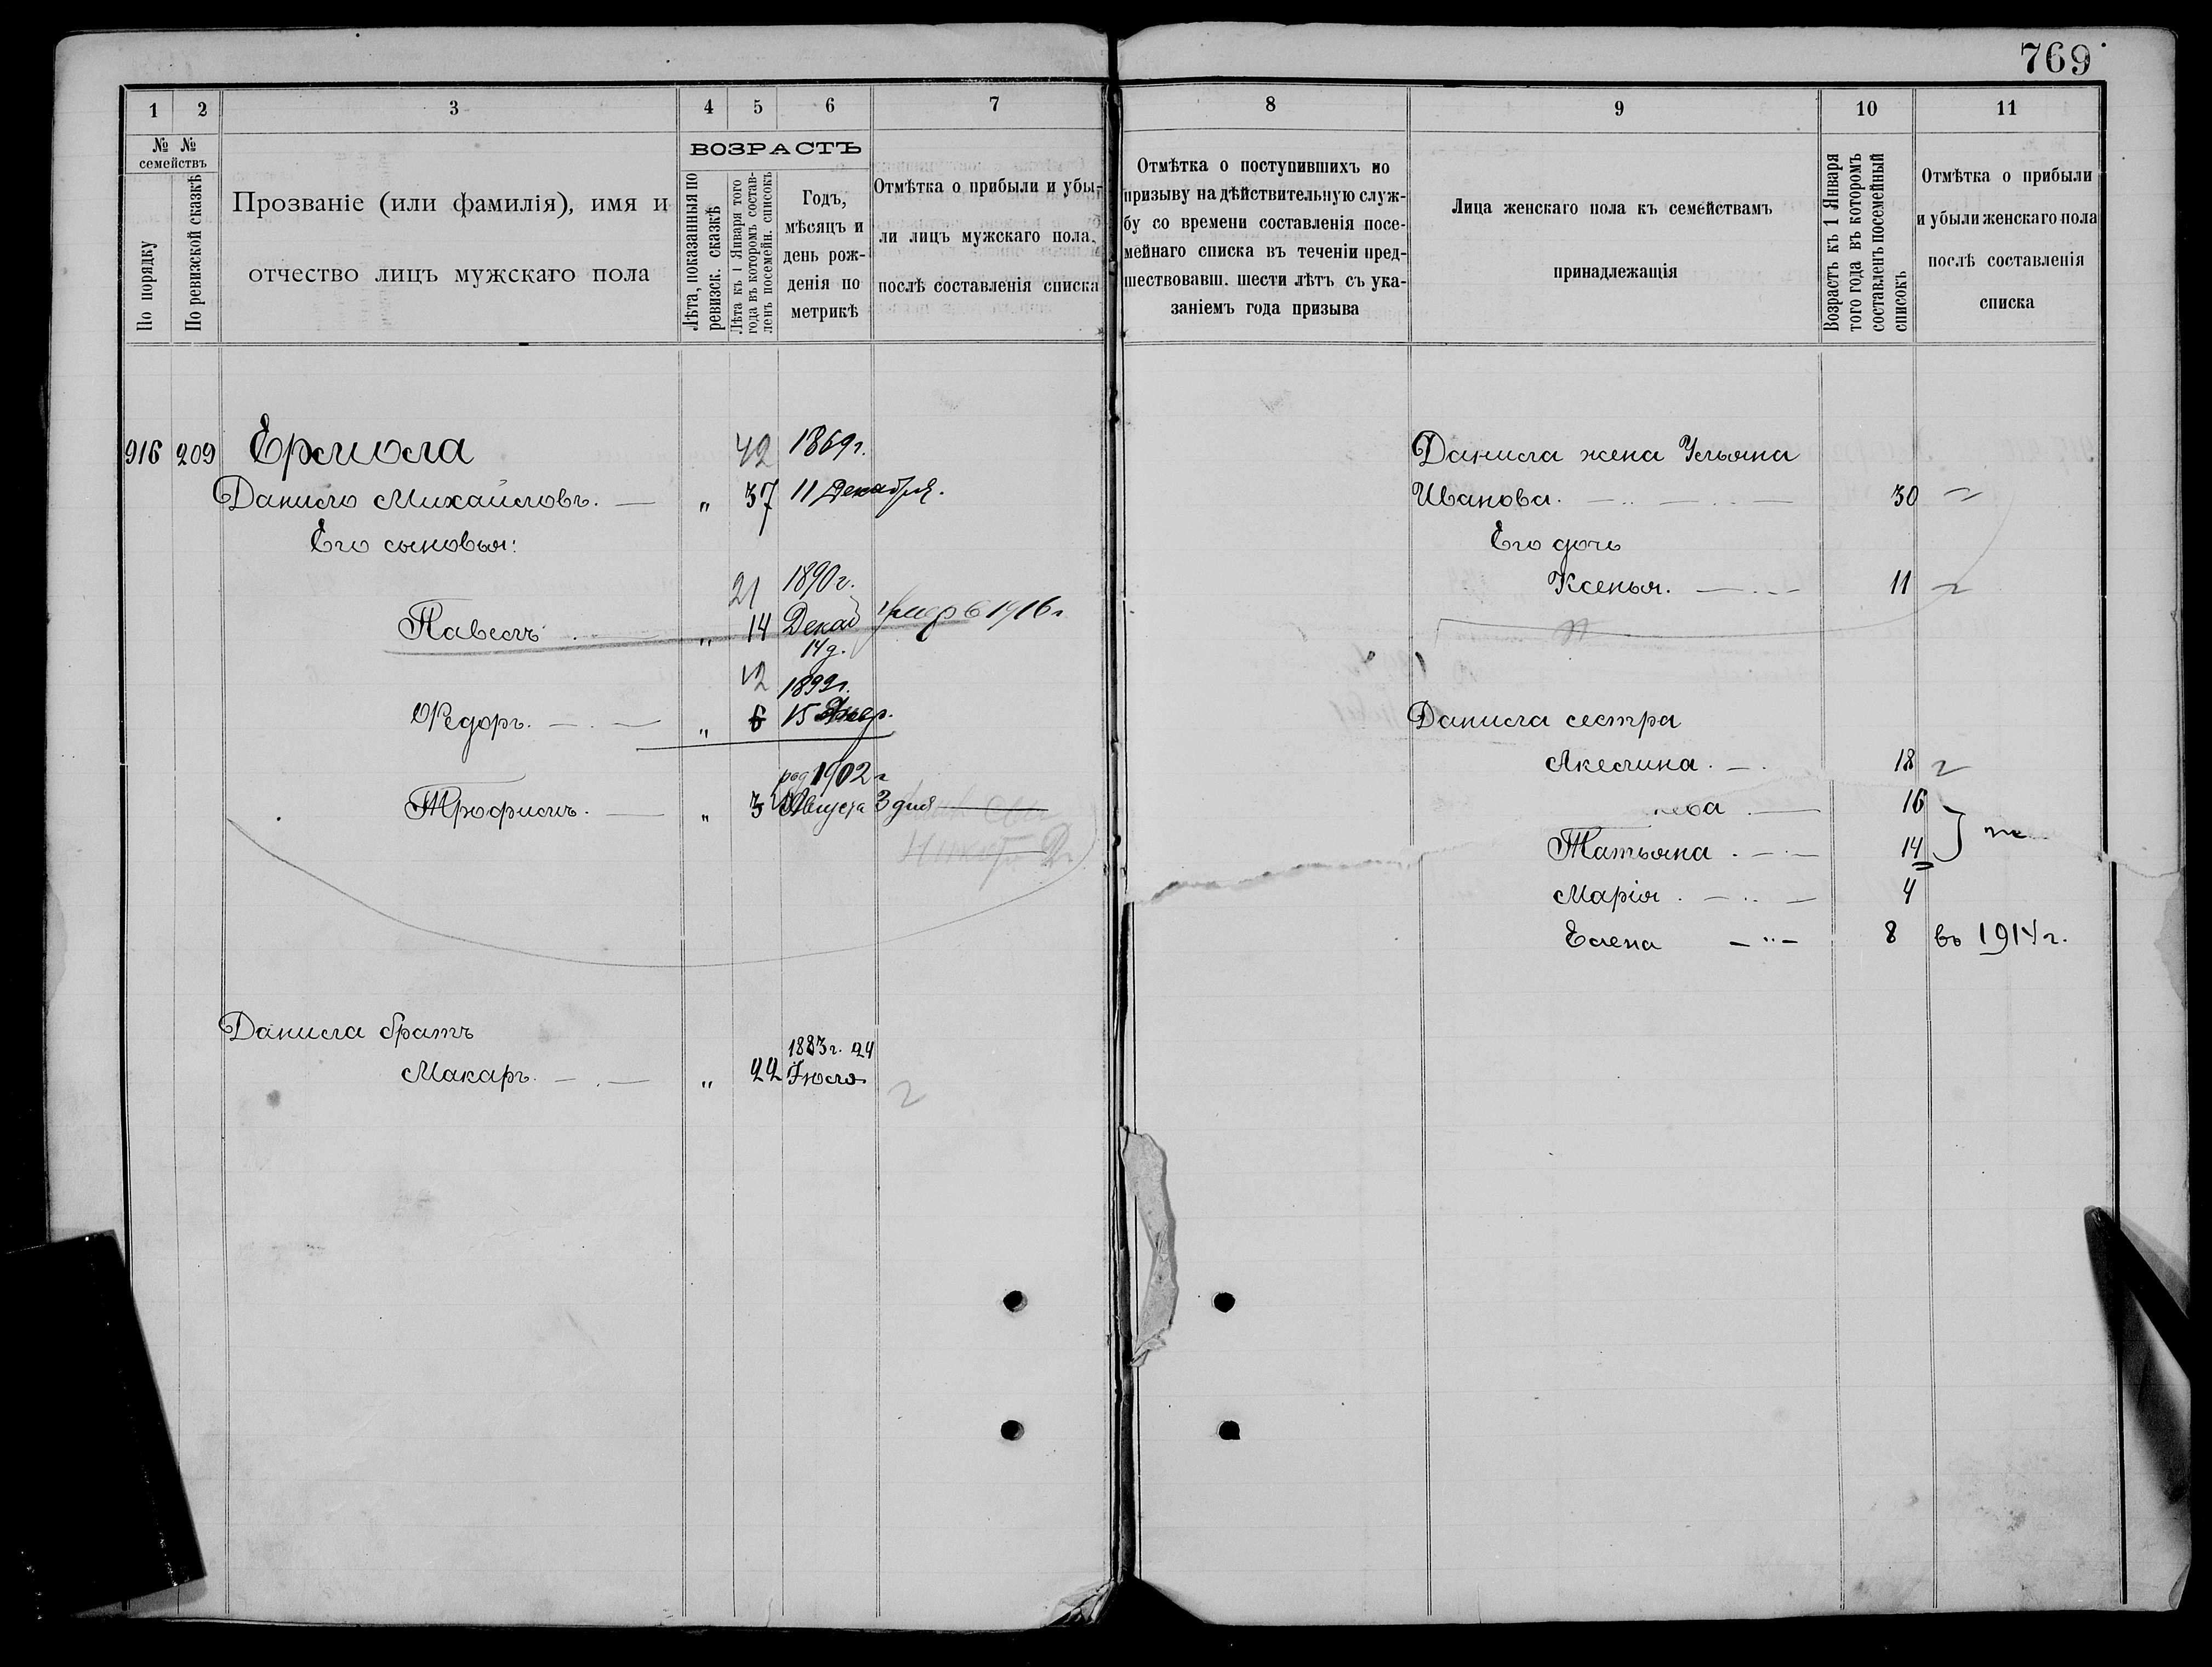 769
1 2 3 4 5 6 7
№ № семействъ
По порядку
По ревизской сказкѣ
Прозваніе (или фамилія), имя и
отчество лицъ мужскаго пола
ВОЗРАСТЪ
Лѣта, показанныя по
ревизск. сказкѣ
Лѣта къ 1 Января того
года въ которомъ состав-
ленъ посемейн. списокъ
Годъ,
мѣсяцъ и
день рож-
денія по
метрикѣ
Отмѣтка о прибыли и убы-
ли лицъ мужскаго пола,
послѣ составленія списка
916 209 Ермола 42 1869г.
Данило Михайловъ. — „ 37 11 Декабря.
Его сыновья:
21 1890г.
Павелъ „ 14 Декаб умеръ 1916г
14д.
12 1899г.
Ѳедоръ. — „ 6 15
род 1902г
Трофимъ. — „ 3 Августа 3 дня
Данила братъ
1883г. 24
Макаръ. — „ 22 Іюля
8 9 10 11
Отмѣтка о поступившихъ по
призыву на дѣйствительную служ-
бу со времени составленія посе-
мейнаго списка въ теченіи пред-
шествовавш. шести лѣтъ съ ука-
заніемъ года призыва
Лица женскаго пола къ семействамъ
принадлежащія
Возрастъ къ 1 Января
того года въ которомъ
составленъ посемейный
списокъ
Отмѣтка о прибыли
и убыли женскаго пола
послѣ составленія
списка
Данила жена Ульяна
Иванова. — 30
Его дочь
Ксенья. — 11
Данила сестра
Акелина. — 18
16
Татьяна. — 14
Марія. — 4
Елена — 8 въ 1914г.